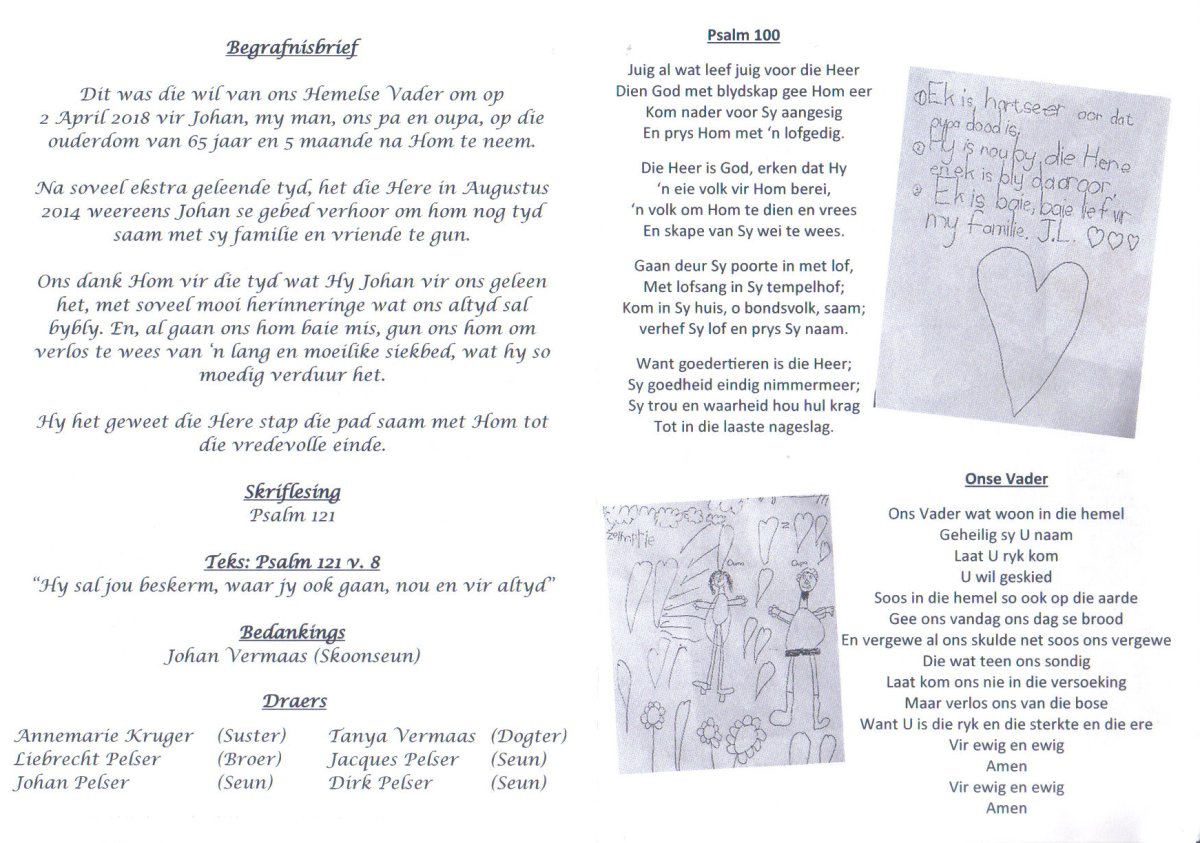 Begrafnisbrief
Dit was die wil van ons Hemelse Vader om op
2 April 2018 vir Johan, my man, ons pa en oupa, op die
ouderdom van 65 jaar en 5 maande na Hom te neem.
Na soveel ekstra geleende tyd, het die Here in Augustus
2014 weereens Johan se gebed verhoor om hom nog tyd
saam met sy familie en vriende te gun.
Ons dank Hom vir die tyd wat Hy Johan vir ons geleen
het, met soveel mooi herinneringe wat ons altyd sal
bybly. En, al gaan ons hom baie mis, gun ons hom om
verlos te wees van ‘n lang en moeilike siekbed, wat hy so
moedig verduur het.
Hy het geweet die Here stap die pad saam met Hom tot
die vredevolle einde.
Skriflesing
Psalm 121
Teks: Psalm 121 v. 8
“Hy sal jou beskerm, waar jy ook gaan, nou en vir altyd”
Bedankings
Johan Vermaas (Skoonseun)
Draers
Annemarie Kruger (Suster) Tanya Vermaas (Dogter)
Liebrecht Pelser (Broer) Jacques Pelser (Seun)
Johan Pelser (Seun) Dirk Pelser (Seun)
Psalm 100
Juig al wat leef juig voor die Heer
Dien God met blydskap gee Hom eer
Kom nader voor Sy aangesig
En prys Hom met ‘n lofgedig.
Die Heer is God, erken dat Hy
‘n eie volk vir Hom berei,
‘n volk om Hom te dien en vrees
En skape van Sy wei te wees.
Gaan deur Sy poorte in met lof,
Met lofsang in Sy tempelhof;
Kom in Sy huis, o bondsvolk, saam;
verhef Sy lof en prys Sy naam.
Want goedertieren is die Heer;
Sy goedheid eindig nimmermeer;
Sy trou en waarheid hou hul krag
Tot in die laaste nageslag.
① Ek is, hartseer oor dat
oupa dood is,
② Hy is nou by, die Here
en ek is bly daaroor.
Ek is baie, baie lief vir
my familie. J.L. ♡♡♡
Oma
Oupa
Onse Vader
Ons Vader wat woon in die hemel
Geheilig sy U naam
Laat U ryk kom
U wil geskied
Soos in die hemel so ook op die aarde
Gee ons vandag ons dag se brood
En vergewe al ons skulde net soos ons vergewe
Die wat teen ons sondig
Laat kom ons nie in die versoeking
Maar verlos ons van die bose
Want U is die ryk en die sterkte en die ere
Vir ewig en ewig
Amen
Vir ewig en ewig
Amen